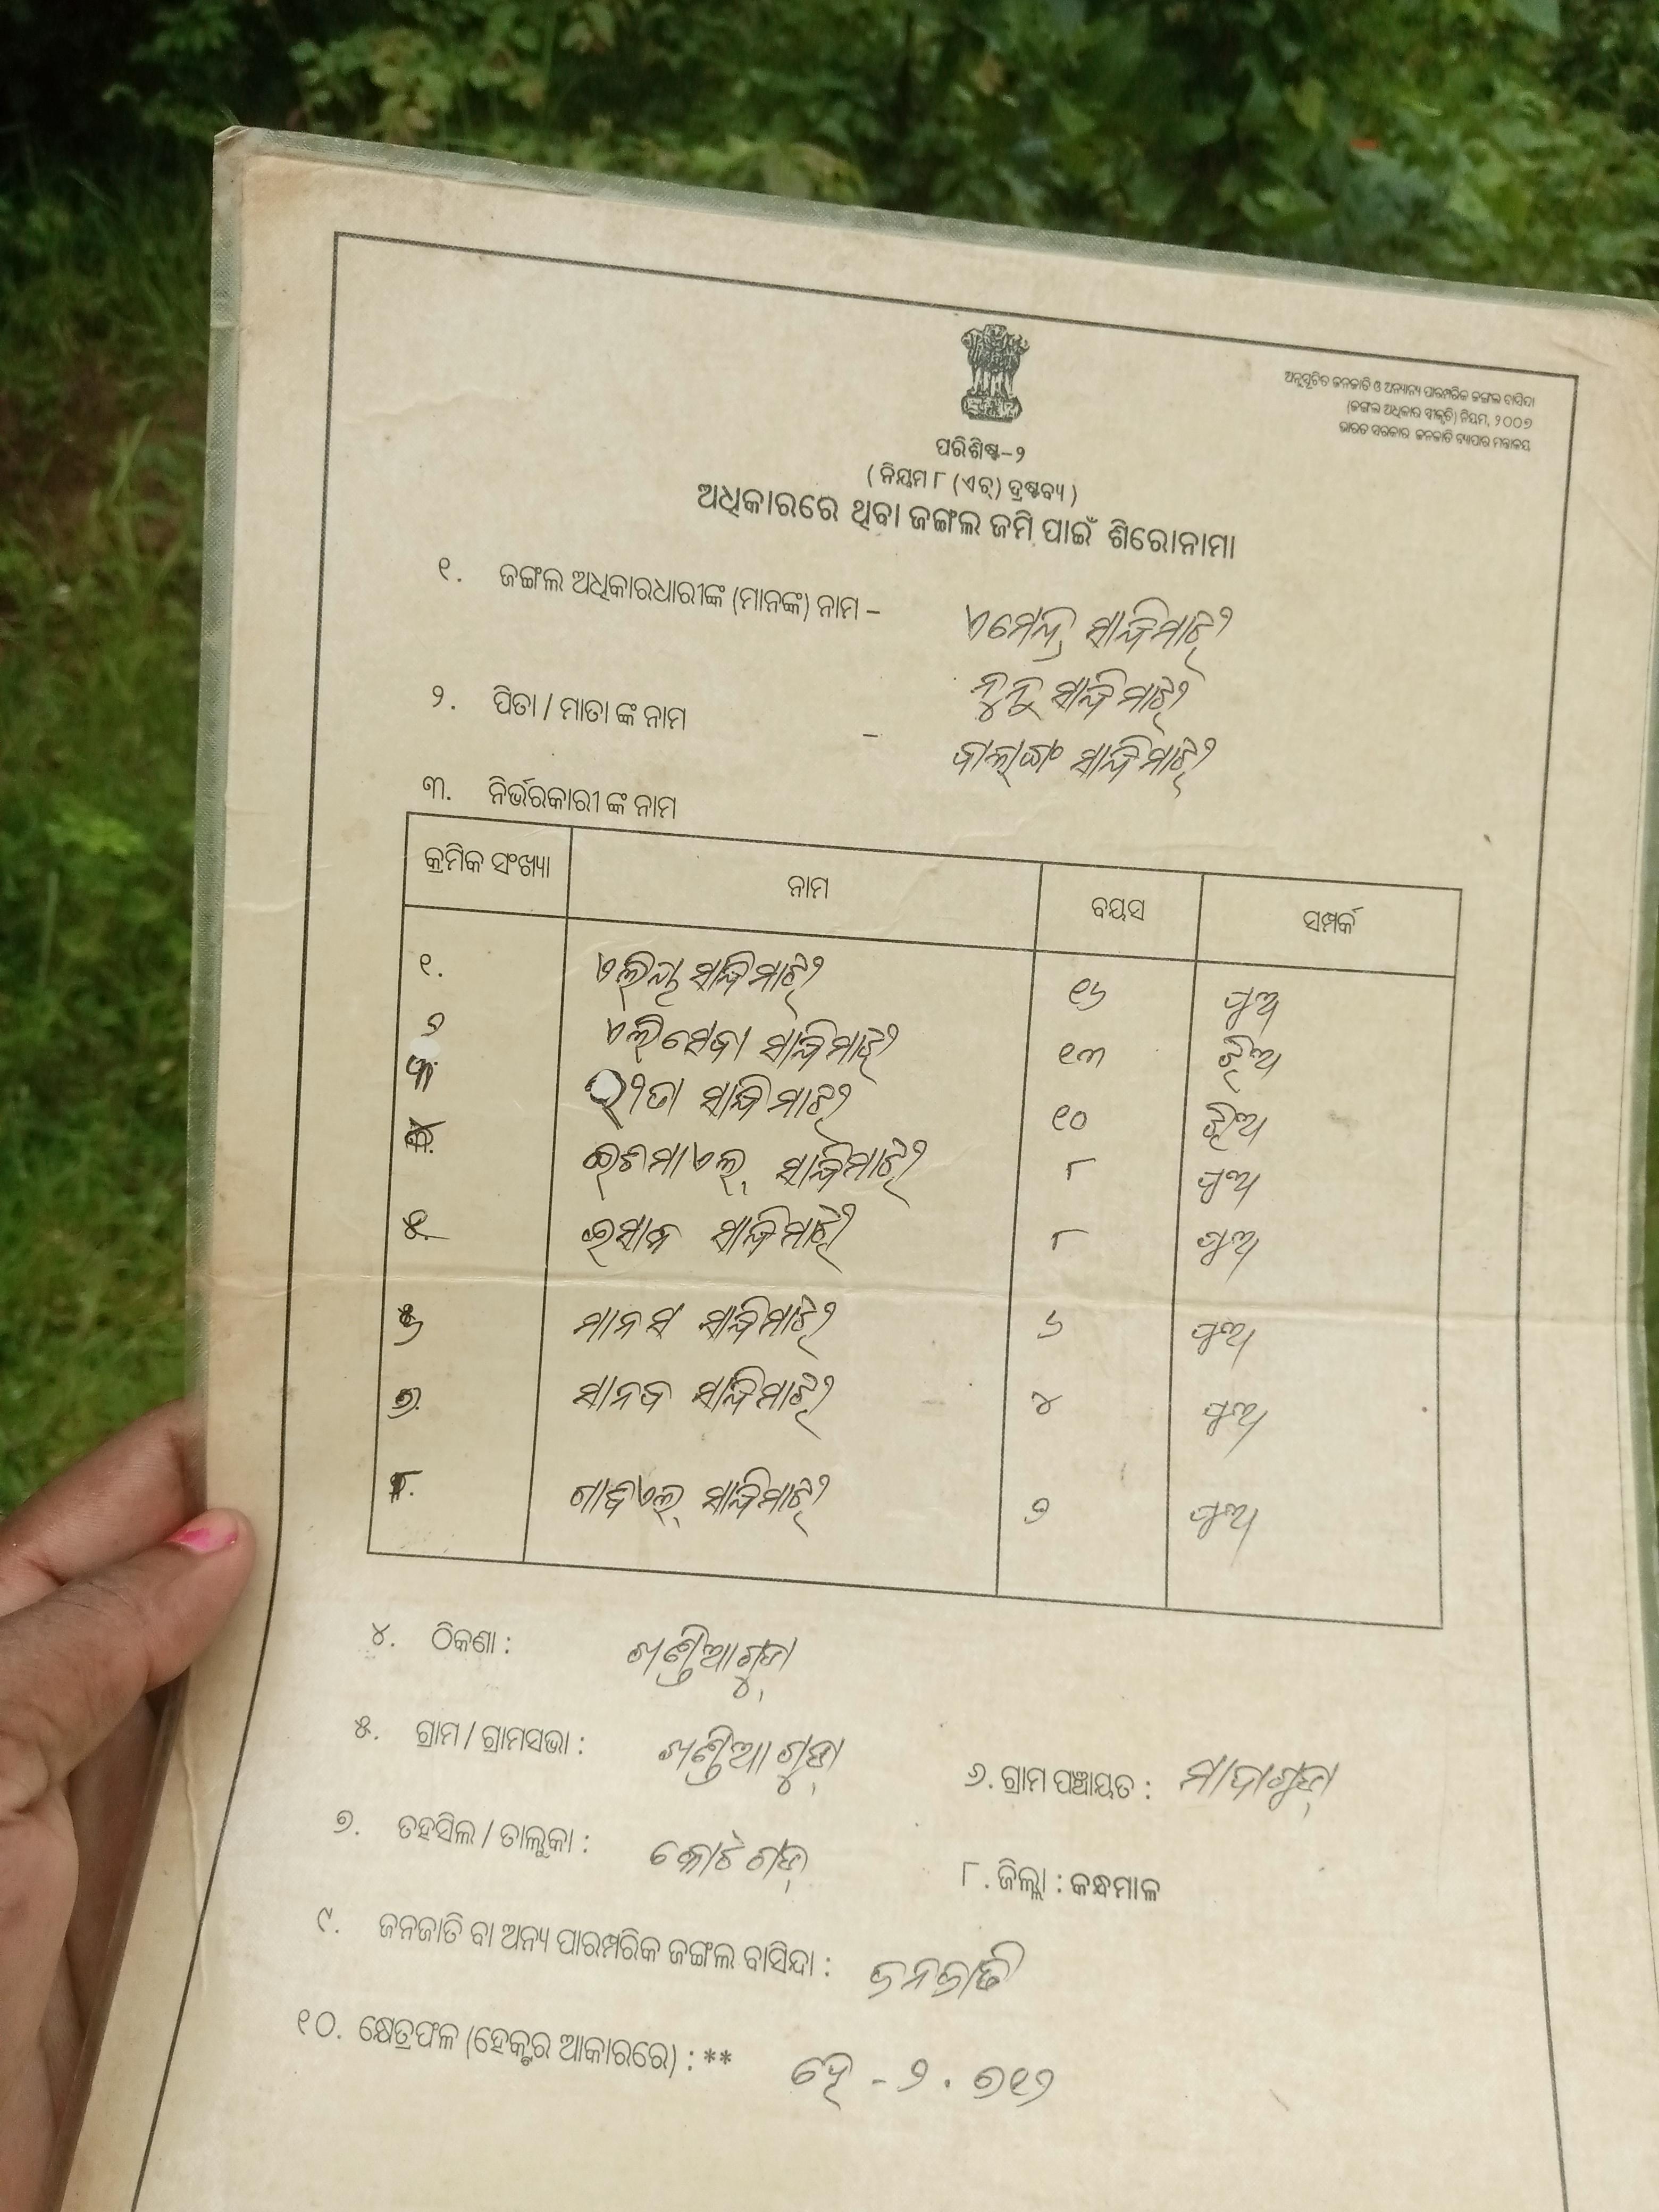 ଅନୁସୂଚିତ ଜନଜାତି ଓ ଅନ୍ୟାନ୍ୟ ପାରମ୍ପରିକ ଜଙ୍ଗଲ ବାସିନ୍ଦା
(ଜଙ୍ଗଲ ଅଧିକାର ସ୍ୱୀକୃତି) ନିୟମ, ୨୦୦୭
ଭାରତ ସରକାର ଜନଜାତି ବ୍ୟାପାର ମନ୍ତ୍ରାଳୟ
ପରିଶିଷ୍ଟ-୨
( ନିୟମ ୮ (ଏଚ୍) ଦ୍ରଷ୍ଟବ୍ୟ )
ଅଧିକାରରେ ଥିବା ଜଙ୍ଗଲ ଜମି ପାଇଁ ଶିରୋନାମା
୧. ଜଙ୍ଗଲ ଅଧିକାରଧାରୀଙ୍କ (ମାନଙ୍କ) ନାମ – ଏମେନ୍ଦ୍ର ସାନ୍ଦିମାଝି
ନୁନୁ ସାନ୍ଦିମାଝି
୨. ପିତା / ମାତା ଙ୍କ ନାମ – ସାନ୍ଦିମାଝି
୩. ନିର୍ଭରକାରୀ ଙ୍କ ନାମ
କ୍ରମିକ ସଂଖ୍ୟା ନାମ ବୟସ ସମ୍ପର୍କ
୧. ସାନ୍ଦିମାଝି ୧୬ ପୁଅ
୨ ଏଲିସେବା ସାନ୍ଦିମାଝି ୧୩ ଝିଅ
୩. ସାନ୍ଦିମାଝି ୧୦ ଝିଅ
୪. ଇଶମାଏଲ୍ ସାନ୍ଦିମାଝି ୮ ପୁଅ
୫. ଇସାକ ସାନ୍ଦିମାଝି ୮ ପୁଅ
୬ ମାନସ ସାନ୍ଦିମାଝି ୬ ପୁଅ
୭. ସାନ୍ଦିମାଝି ୪ ପୁଅ
୮. ଗାବ୍ରିଏଲ୍ ସାନ୍ଦିମାଝି ୨ ପୁଅ
୪. ଠିକଣା : ଖଣ୍ଡିଆଗୁଡ଼ା
୫. ଗ୍ରାମ / ଗ୍ରାମସଭା : ଖଣ୍ଡିଆଗୁଡ଼ା
୬. ଗ୍ରାମ ପଞ୍ଚାୟତ : ମାଦାଗୁଡ଼ା
୭. ତହସିଲ / ତାଲୁକା : କୋଟଗଡ଼
୮. ଜିଲ୍ଲା : କନ୍ଧମାଳ
୯. ଜନଜାତି ବା ଅନ୍ୟ ପାରମ୍ପରିକ ଜଙ୍ଗଲ ବାସିନ୍ଦା : ଜନଜାତି
୧୦. କ୍ଷେତ୍ରଫଳ (ହେକ୍ଟର ଆକାରରେ) : ** ହେ - ୨.୭୧୨